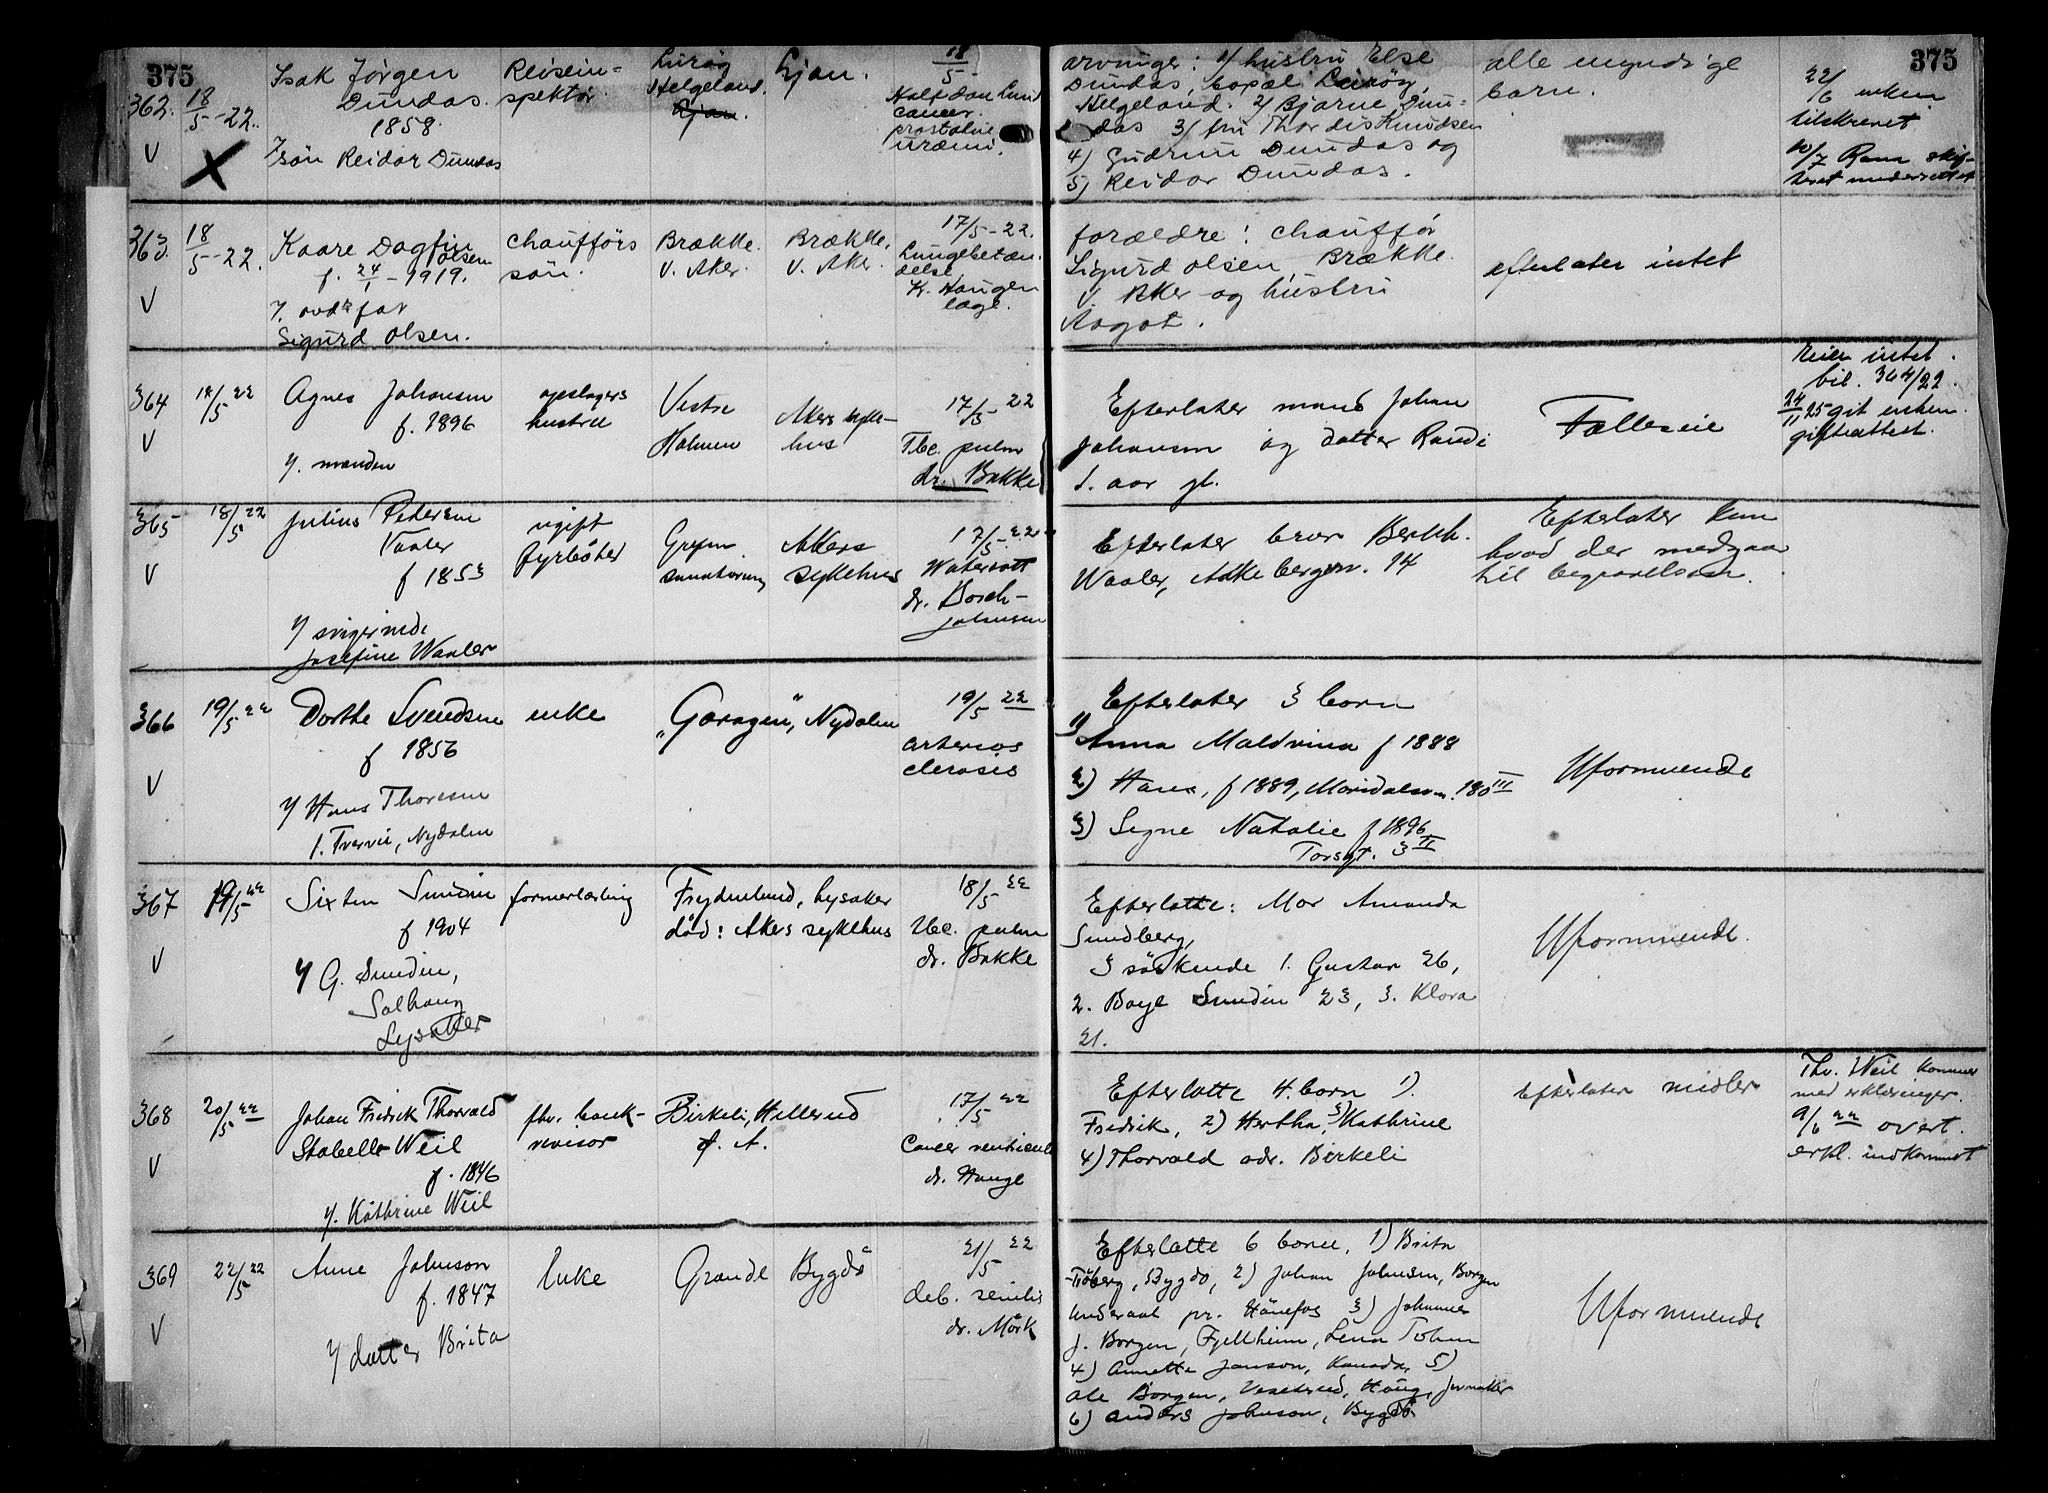 375
375
362.
18/5-22.
V
Isak Jørgen
Dundas.
1858.
/ søn Reidar Dundas
Reisein-
spektør
Lurøy
Helgeland.
Ljan.
Ljan.
18/5
Halfdan Lund
cancer.
prostatae
uræmi.
arvinger: 1/ hustru Else
Dundas, bopæl Lurøy,
Helgeland. 2/ Bjarne Dun-
das 3/ fru Thordis Knudsen
4) Gudrun Dundas og
5) Reidar Dundas.
alle myndige
barn.
22/6 enken
tilskrevet.
10/7 Rana skif-
teret underrettet
363.
18/5-22.
V
Kaare Dagfin
Olsen
f. 24/1-1919.
/. far
Sigurd Olsen.
chaufførs
søn.
Brække.
V. Aker.
Brække.
V. Aker.
17/5-22.
Lungebetæn-
delse
K. Haugen
læge.
forældre: chauffør
Sigurd Olsen, Brække
V. Aker og hustru
Aagot.
efterlater intet
364
18/5 22
V
Agnes Johansen
f. 1896
/. manden
opslagers
hustru
Vestre
Holmen
Akers syke-
hus
17/5 22
Tbc. pulm
dr. Bakke
Efterlater mand Johan
Johansen og datter Randi
1. aar gl.
Fælleseie
Eier intet.
bil. 364/22.
24/11 25 git enken.
gifteattest.
365
18/5 22
V
Julius Pedersen
Vaaler
f 1853
/ svigerinde
Josefine Waaler
ugift
fyrbøter
Grefsen
sanatorium
Akers
sykehus
17/5-22
dr. Borch-
Johnsen
Efterlater bror Berth.
Waaler, Akebergvn. 14
Efterlater kun
hvad der medgaar
til begravelsen.
366
19/5 22
V
Dorthe Svendsen
f 1856
/ Hans Thoresen
1. Tvervei, Nydalen
enke
"Garagen", Nydalen
19/5 22
arterios
clerosis
Efterlater 3 barn
1)
Anna Maldvina f 1888
2) Hans, f 1889, Maridalsvn. 180 III
3) Signe Natalie f 1896
Torsgt. 3 II
Uformuende
367
19/5 22
V
Sixten Sundin
f 1904
/ G. Sundin,
Solhaug
Lysaker
formerlærling
Frydenlund, Lysaker
død: Akers sykehus
18/5 22
Tbc. pulm
dr. Bakke
Efterlatte: Mor Amanda
Sundberg,
3 søskende 1. Gustav 26,
2. Boye Sundin 23, 3. Klara
21.
Uformuende.
368
20/5 22
V
Johan Fredrik Thorvald
Stabell Weil
f. 1846
/. Kathrine Weil
fhv. bank-
revisor
Birkeli, Hillerud
V. A.
17/5 22
Cancer ventriculi
dr. Hauge
Efterlatte 4. barn 1).
Fredrik, 2) Hertha, 3) Kathrine
4) Thorvald adr. Birkeli
Efterlater midler
Thv. Weil kommer
med erklæringer.
9/6 22 overt.
erkl. indkommet
369
22/5 22
V
Anne Johnson
f. 1847
/ datter Brita
Enke
Grande Bygdø
21/5 22
deb. senilis
dr. Mørk
Efterlatte 6 barn, 1) Brita
Frøberg, Bygdø, 2) Johan Johnsen, Borgen
Underaal pr. Hønefos 3) Johannes
J. Borgen, Fjellheim, Lena Toten
4) Annette Janson, Kanada, 5)
Ole Borgen, Haug, Jevnaker
6) Anders Johnson, Bygdø
Uformuende